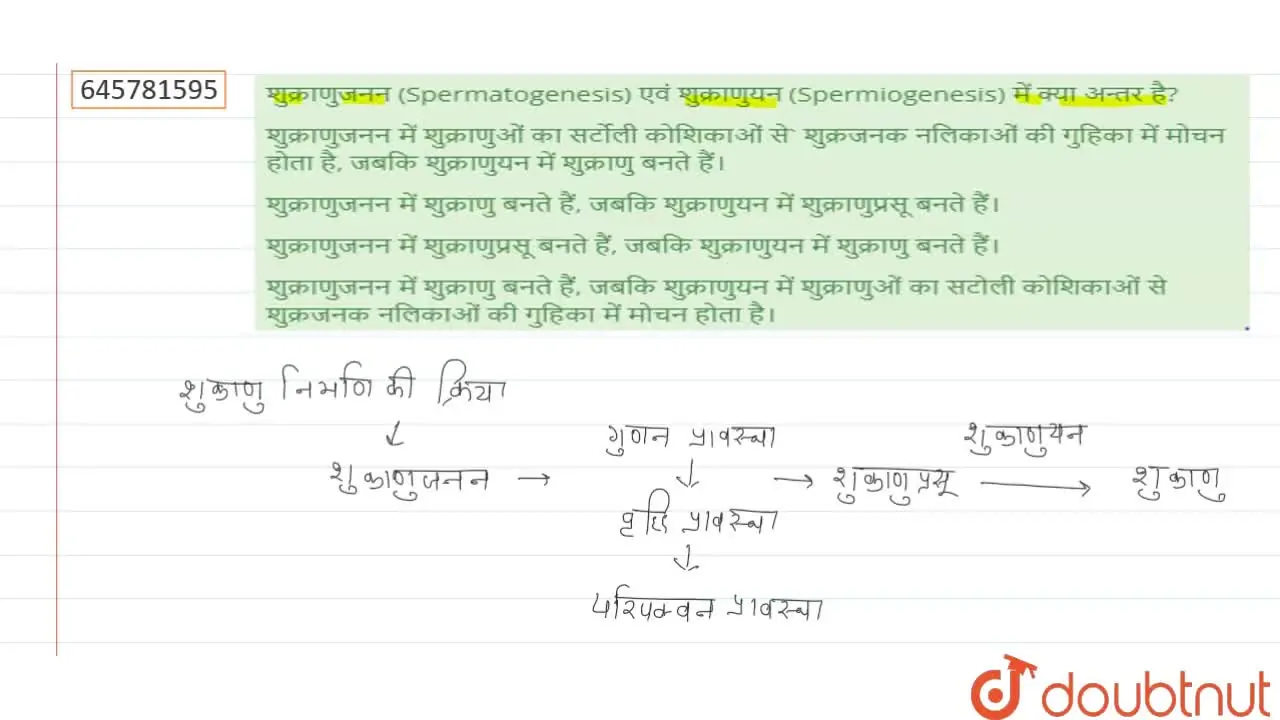 645781595
शुक्राणुजनन (Spermatogenesis) एवं शुक्राणुयन (Spermiogenesis) में क्या अन्तर है?
शुक्राणुजनन में शुक्राणुओं का सर्टोली कोशिकाओं से शुक्रजनक नलिकाओं की गुहिका में मोचन
होता है, जबकि शुक्राणुयन में शुक्राणु बनते हैं।
शुक्राणुजनन में शुक्राणु बनते हैं, जबकि शुक्राणुयन में शुक्राणुप्रसू बनते हैं।
शुक्राणुजनन में शुक्राणुप्रसू बनते हैं, जबकि शुक्राणुयन में शुक्राणु बनते हैं।
शुक्राणुजनन में शुक्राणु बनते हैं, जबकि शुक्राणुयन में शुक्राणुओं का सटोली कोशिकाओं से
शुक्रजनक नलिकाओं की गुहिका में मोचन होता है।
शुक्राणु निर्माण की क्रिया
गुणन प्रावस्था शुक्राणुयन
शुक्राणुजनन → → शुक्राणुप्रसू → शुक्राणु
वृद्धि प्रावस्था
परिपक्वन प्रावस्था
doubtnut